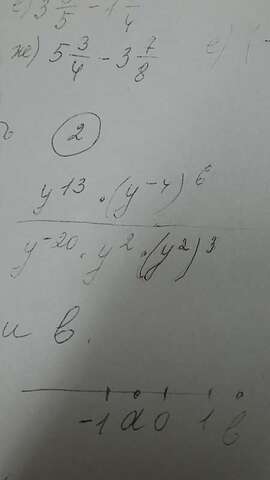 е) 3 3/5 - 1 1/4
же) 5 3/4 - 3 7/8 е) (-
2
y^13 · (y^-4)^6
y^-20 · y^2 · (y^2)^3
и b.
-1 a 0 1 b